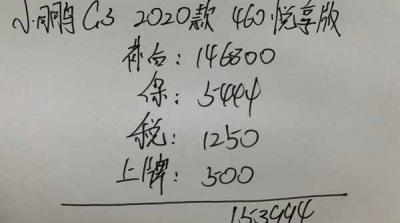 小鹏G3 2020款 460悦享版
补后：146800
保：5444
税：1250
上牌：500
153994